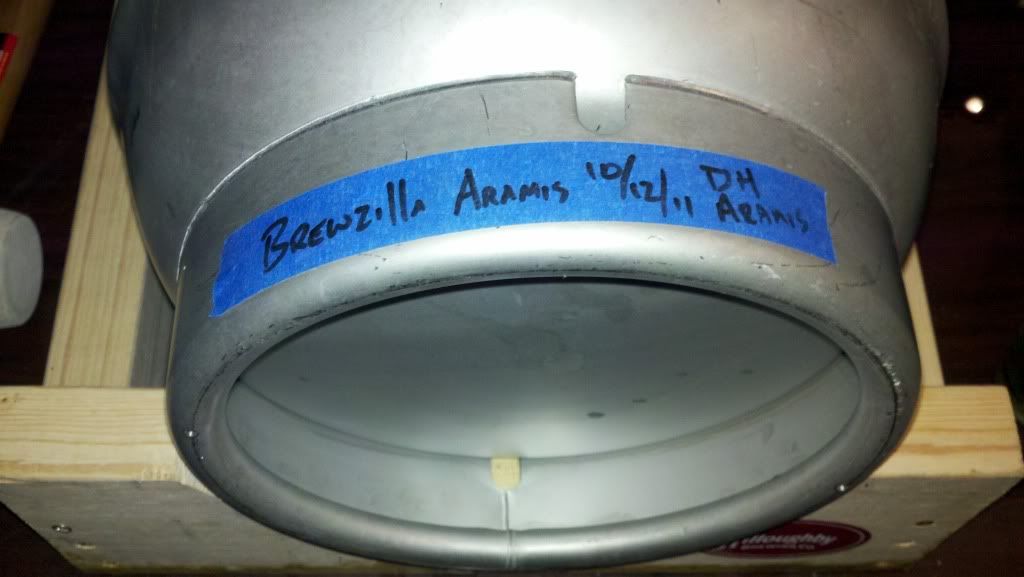 BREWZilla ARAMIS 10/12/11 DH
ARAMIS
Willoughby